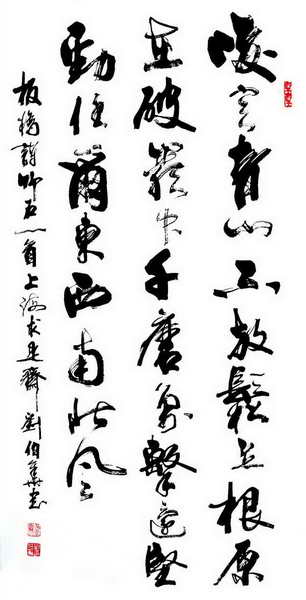 咬定青山不放鬆立根原
在破巖中千磨萬擊還堅
勁任爾東西南北風
板橋詩竹石一首上海求是齋劉伯書